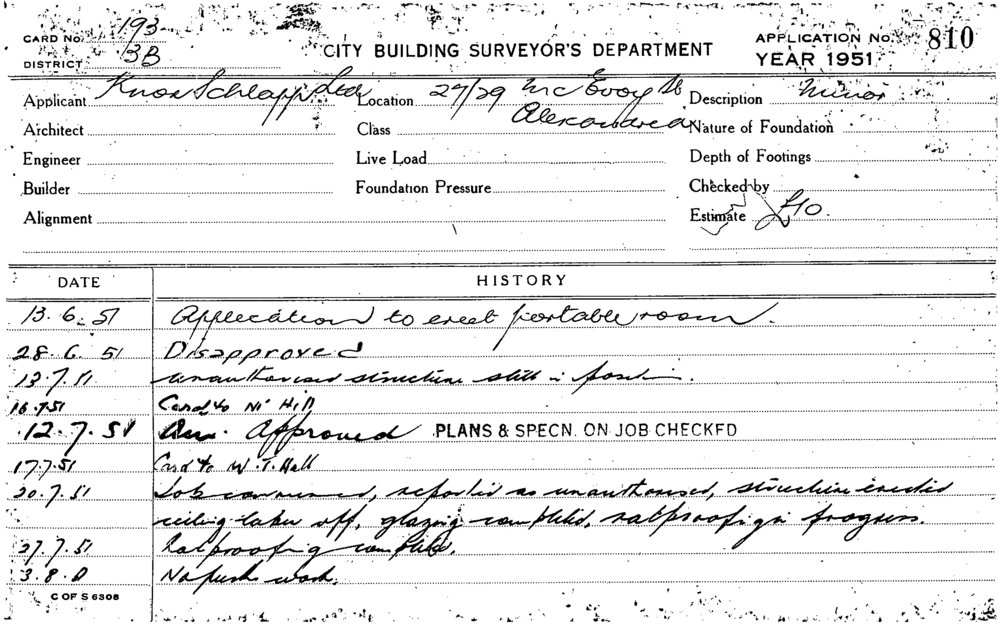 CARD No. 193
DISTRICT 3B
CITY BUILDING SURVEYOR'S DEPARTMENT
APPLICATION No. 810
YEAR 1951
Applicant Knox Schlapp Ltd Location 27/29 McEvoy St Description Minor
Alexandria
Architect Class Nature of Foundation
Engineer Live Load Depth of Footings
Builder Foundation Pressure Checked by
Alignment Estimate £10.
DATE HISTORY
13.6.51 Application to erect portable room.
28.6.51 Disapproved
13.7.51 unauthorised structure still in position.
16.7.51 Card to Mr Hill
12.7.51 Approved PLANS & SPECN. ON JOB CHECKED
17.7.51 Card to W.T. Hall
20.7.51 Job commenced, reported as unauthorised, structure erected
ceiling taken off, glazing completed, ratproofing in progress.
27.7.51 Ratproofing complete.
3.8. No fresh work.
C OF S 6306